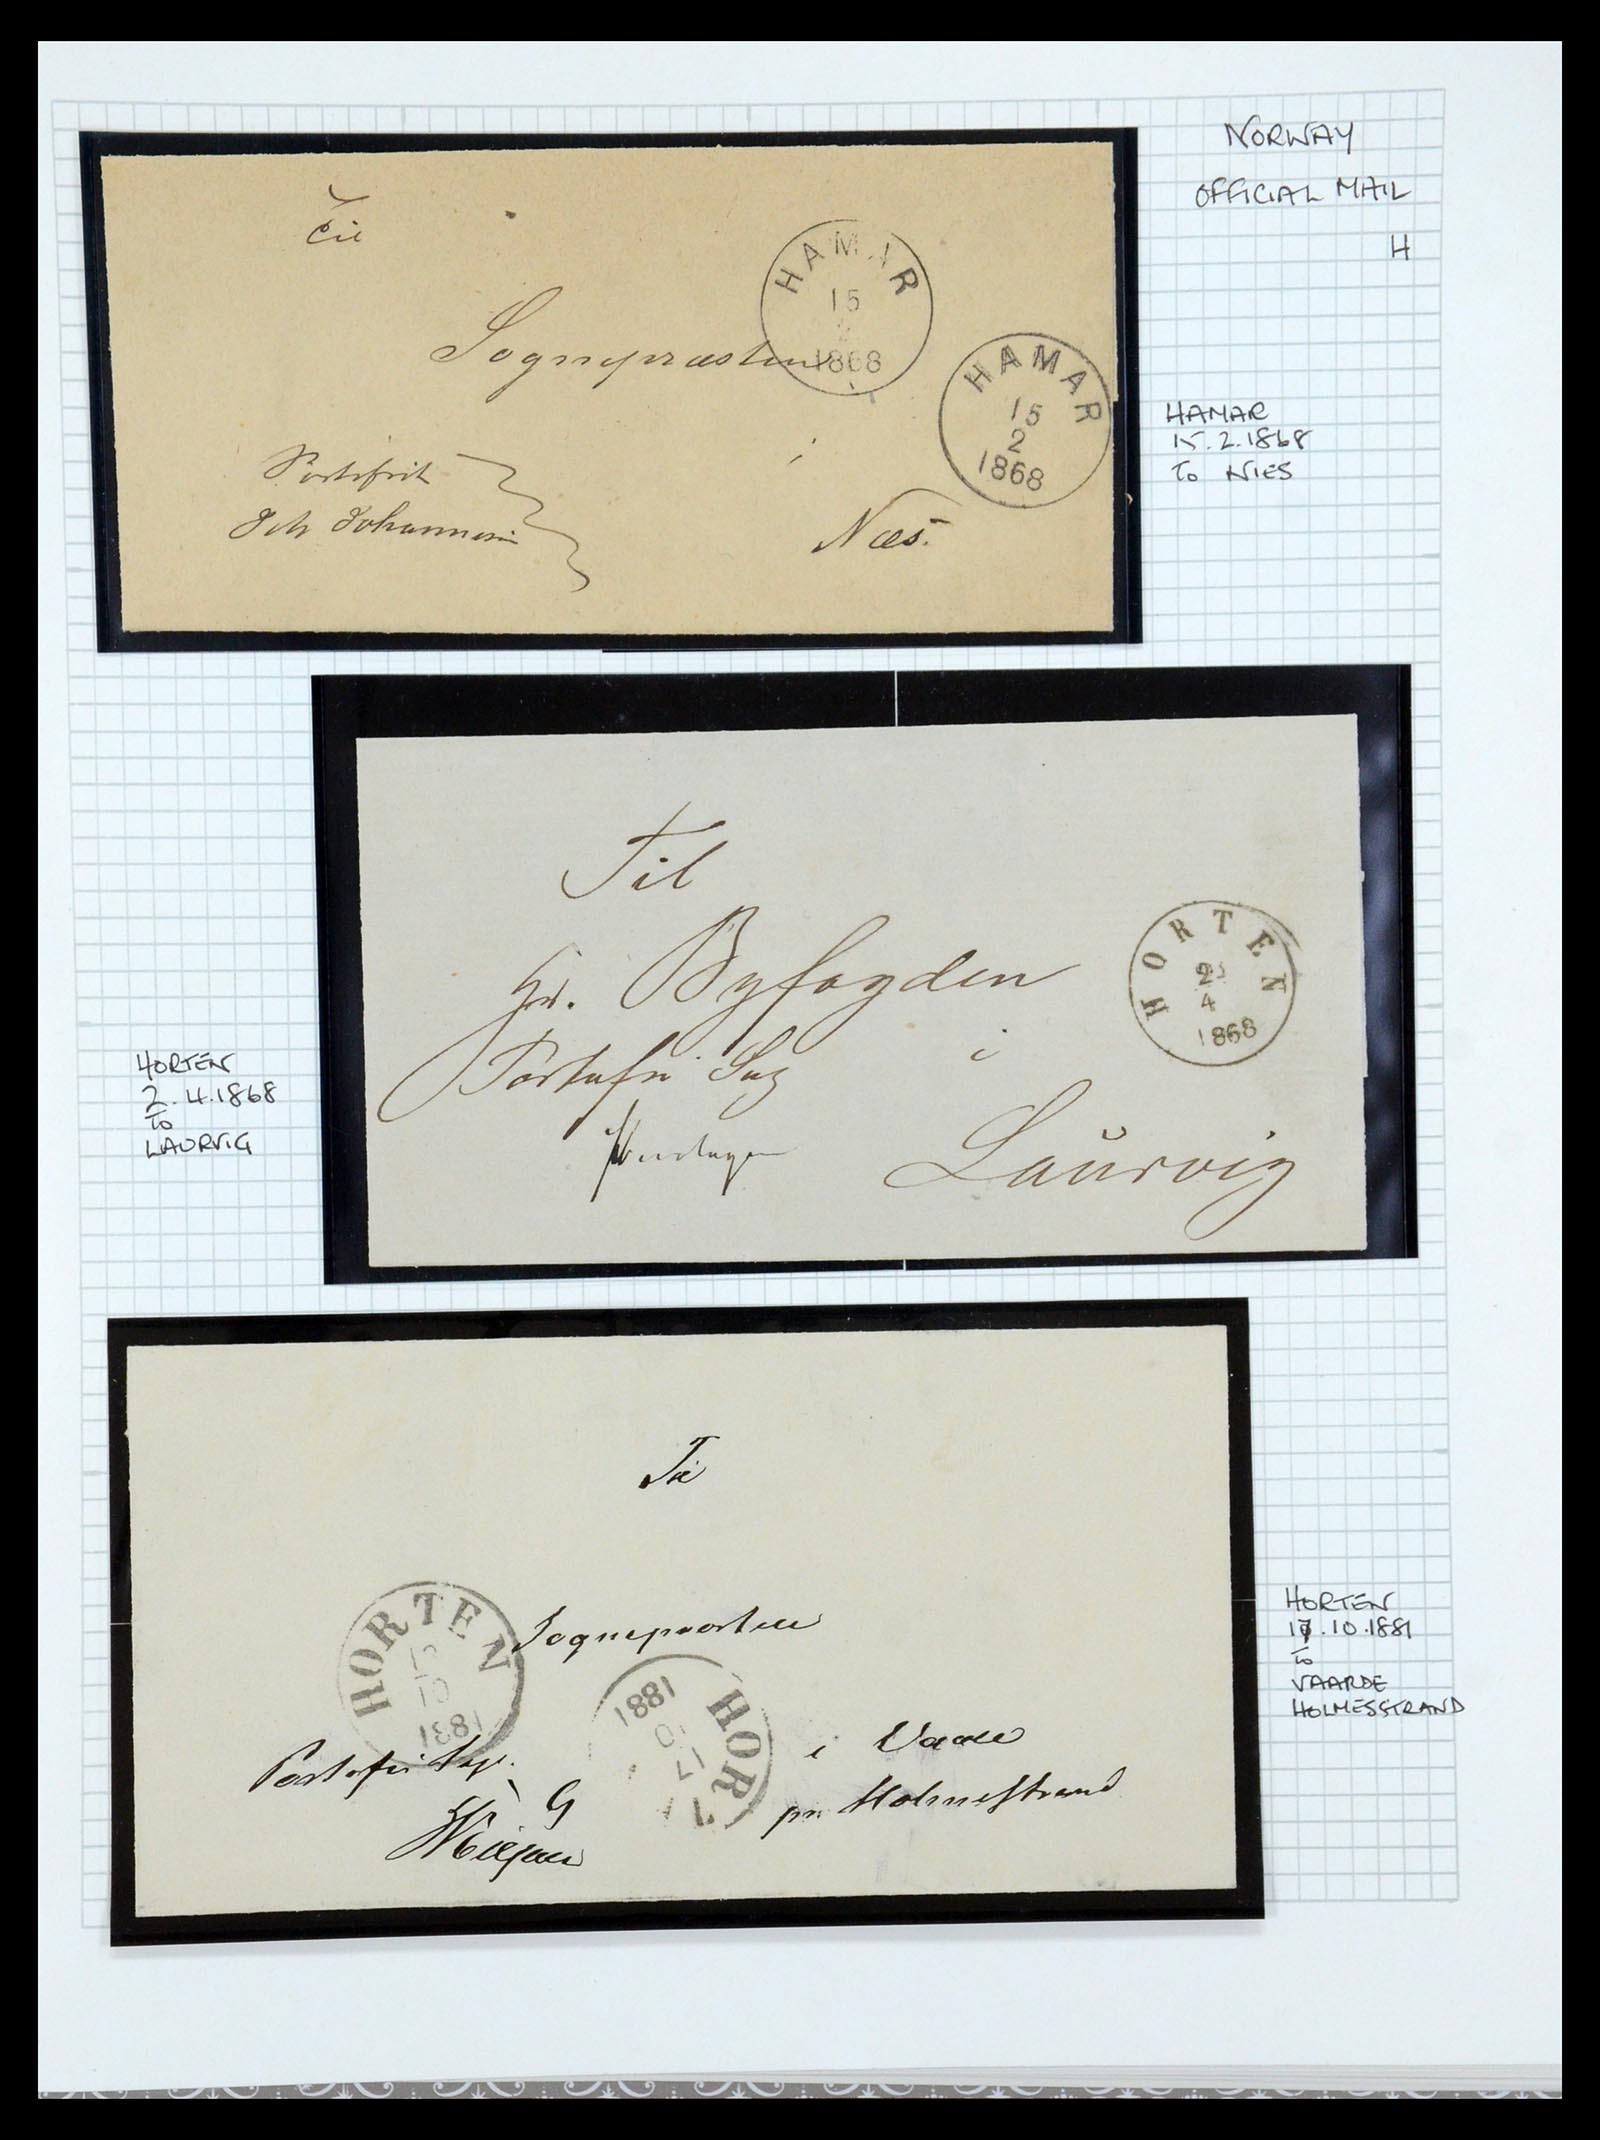 NORWAY
OFFICIAL MAIL
H
Til
HAMAR
15
1868
Sognepræsten
HAMAR
15
2
1868
Portofrit
Johannesen
i
Næs.
HAMAR
15.2.1868
to NIES
Til
Hr. Byfogden
Portofri Sag
i
Laurvig
HORTEN
2
4
1868
HORTEN
2.4.1868
To
LAURVIG
Til
Sognepræsten
HORTEN
17
10
1881
HORT
17
10
1881
Portofri Sag.
i Vaale
pr. Holmestrand
HORTEN
17.10.1881
to
VAARDE
HOLMESSTRAND